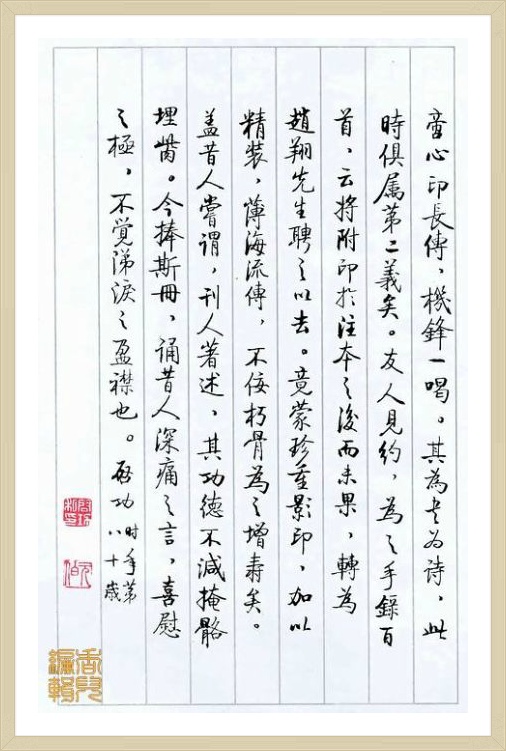 童心印長傳，機鋒一喝。其為書為詩，此
時俱属第二義矣。友人見約，為之手錄百
首，云将附印於注本之後而未果，轉為
趙翔先生聘之以去。竟蒙珍重影印，加以
精装，薄海流傳，不佞朽骨為之增壽矣。
盖昔人嘗謂，刊人著述，其功德不減掩骼
埋胔。今捧斯冊，誦昔人深痛之言，喜慰
之極，不覺涕淚之盈襟也。啟功
時年第
八十歲
啟功
元白